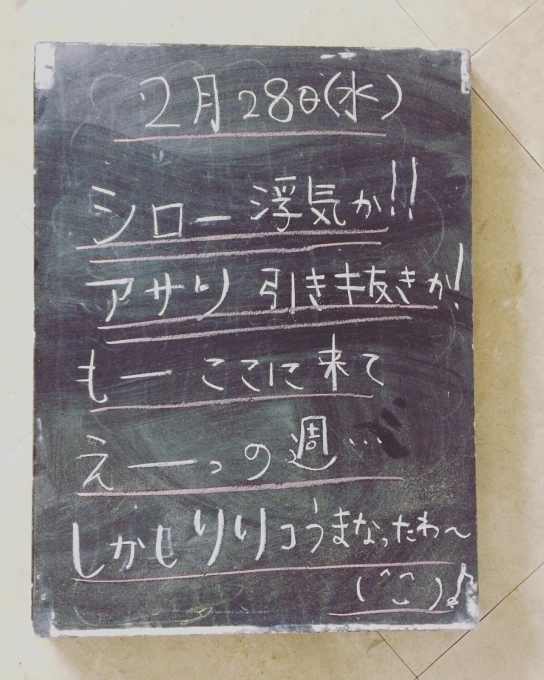 2月28日(水)
シロー浮気か!!
アサリ 引き抜きか!
もー ここに来て
えーっの週…
しかしリリコうまなったわ〜
(^^)♪